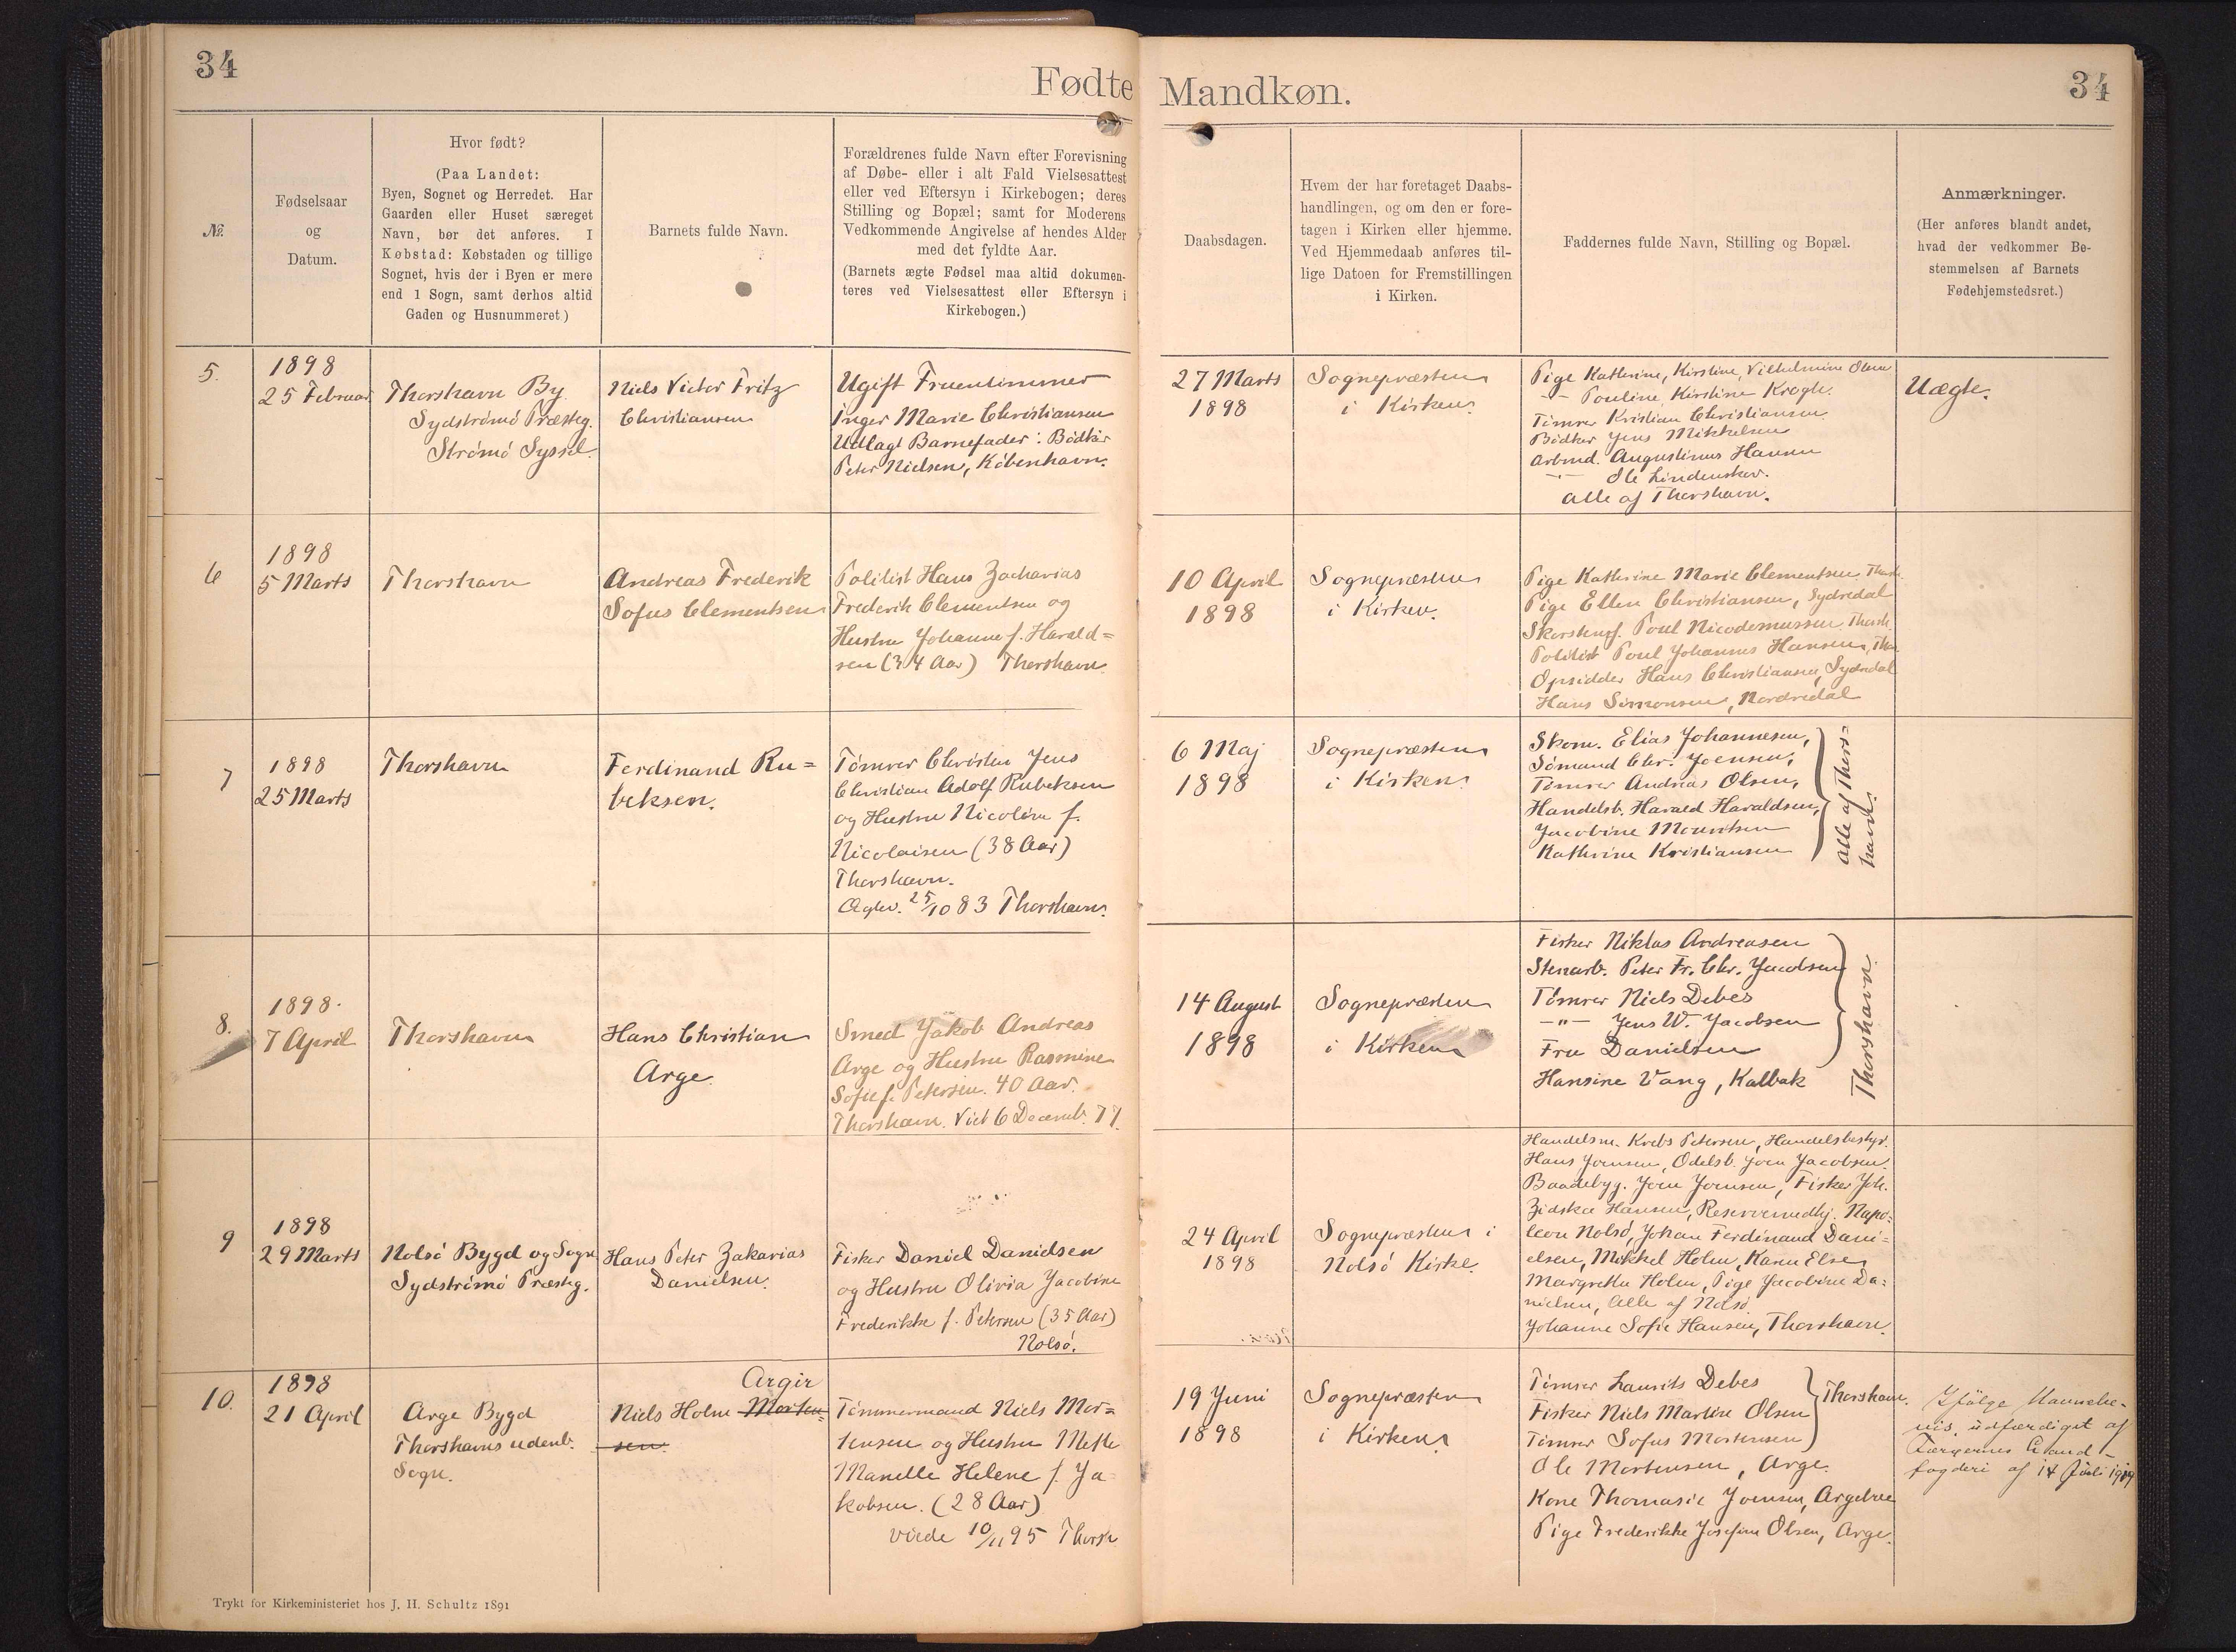 34
Fødte
Mandkøn.
34
№
Fødselsaar
og
Datum.
Hvor født?
(Paa Landet:
Byen, Sognet og Herredet. Har
Gaarden eller Huset særeget
Navn, bør det anføres. I
Købstad: Købstaden og tillige
Sognet, hvis der i Byen er mere
end 1 Sogn, samt derhos altid
Gaden og Husnummeret)
Barnets fulde Navn.
Forældrenes fulde Navn efter Forevisning
af Døbe- eller i alt Fald Vielsesattest
eller ved Eftersyn i Kirkebogen; deres
Stilling og Bopæl; samt for Moderens
Vedkommende Angivelse af hendes Alder
med det fyldte Aar.
(Barnets ægte Fødsel maa altid dokumen-
teres ved Vielsesattest eller Eftersyn i
Kirkebogen.)
Daabsdagen.
Hvem der har foretaget Daabs-
handlingen, og om den er fore-
tagen i Kirken eller hjemme.
Ved Hjemmedaab anføres til-
lige Datoen for Fremstillingen
i Kirken.
Faddernes fulde Navn, Stilling og Bopæl.
Anmærkninger.
(Her anføres blandt andet,
hvad der vedkommer Be-
stemmelsen af Barnets
Fødehjemstedsret.)
5.
1898
25 Februar
Thorshavn By
Sydstrømø Præsteg.
Strømø Syssel.
Niels Victor Fritz
Christiansen
Ugift Fruentimmer
Inger Marie Christiansen
Udlagt Barnefader: Bødker
Peter Nielsen, København.
27 Marts
1898
Sognepræsten
i Kirken.
Pige Kathrine, Kirstine, Vilhelmine Olsen
-"- Pouline Kirstine Krogh.
Tømrer Kristian Christiansen
Bødker Jens Mikkelsen
Arbmd. Augustinus Hansen
-"- Ole Lindenskov.
Alle af Thorshavn.
Uægte.
6
1898
5 Marts
Thorshavn
Andreas Frederik
Sofus Clementsen
Politist Hans Zacharias
Frederik Clementsen og
Hustru Johanne f. Harald=
sen (34 Aar) Thorshavn
10 April
1898
Sognepræsten
i Kirken.
Pige Kathrine Marie Clementsen, Thorsh.
Pige Ellen Christiansen, Sydredal
Poul Nicodemussen, Thorsh.
Politist Poul Johannes Hansen, Thor.
Opsidder Hans Christiansen, Sydredal
Hans Simonsen, Nordredal
7
1898
25 Marts
Thorshavn
Ferdinand Ru=
beksen.
Tømrer Christen Jens
Christian Adolf Rubeksen
og Hustru Nicoline f.
Nicolaisen (38 Aar)
Thorshavn.
25/10 83 Thorshavn.
6 Maj
1898
Sognepræsten
i Kirken.
Skom. Elias Johannesen,
Sømand Chr. Joensen,
Tømrer Andreas Olsen,
Handelsb. Harald Haraldsen,
Jacobine Mouritsen
Kathrine Kristiansen
Alle af Thors=
havn.
8.
1898.
7 April
Thorshavn
Hans Christian
Arge
Smed Jakob Andreas
Arge og Hustru Rasmine
Sofie f. Petersen. 40 Aar.
Thorshavn. Viet 6 Decemb. 77.
14 August
1898
Sognepræsten
i Kirken
Fisker Niklas Andreasen
Stenarb. Peter Fr. Chr. Jacobsen
Tømrer Niels Debes
-"- Jens W. Jacobsen
Fru Danielsen
Hansine Vang, Kalbak
Thorshavn
9
1898
29 Marts
Nolsø Bygd og Sogn
Sydstrømø Præsteg.
Hans Peter Zakarias
Danielsen.
Fisker Daniel Danielsen
og Hustru Olivia Jacobine
Frederikke f. Petersen (35 Aar)
Nolsø.
24 April
1898
Sognepræsten i
Nolsø Kirke.
Handelsm. Krebs Petersen, Handelsbestyr.
Hans Joensen, Odelsb. Joen Jacobsen.
Baadebyg. Joen Joensen, Fisker Joh.
Zidska Hansen, Napo=
leon Nolsø, Johan Ferdinand Dani=
elsen, Mikkel Holm, Karen Else
Margrethe Holm, Pige Jacobine Da=
nielsen, Alle af Nolsø.
Johanne Sofie Hansen, Thorshavn.
10.
1898
21 April
Arge Bygd
Thorshavns udenb.
Sogn.
Argir
Niels Holm Morten=
sen.
Tømmermand Niels Mor=
tensen og Hustru Mette
Manelle Helene f. Ja=
kobsen. (28 Aar)
viede 10/11 95 Thorsh
19 Juni
1898
Sognepræsten
i Kirken
Tømrer Laurits Debes
Fisker Niels Martin Olsen
Tømrer Sofus Mortensen
Ole Mortensen, Arge.
Kone Thomasie Joensen, Argebro
Pige Frederikke Josefine Olsen, Arge.
Thorshavn.
Ifølge Navnebe-
vis, udfærdiget af
Færøernes Land-
fogderi af 14 Juli 1919
Trykt for Kirkeministeriet hos J. H. Schultz 1891